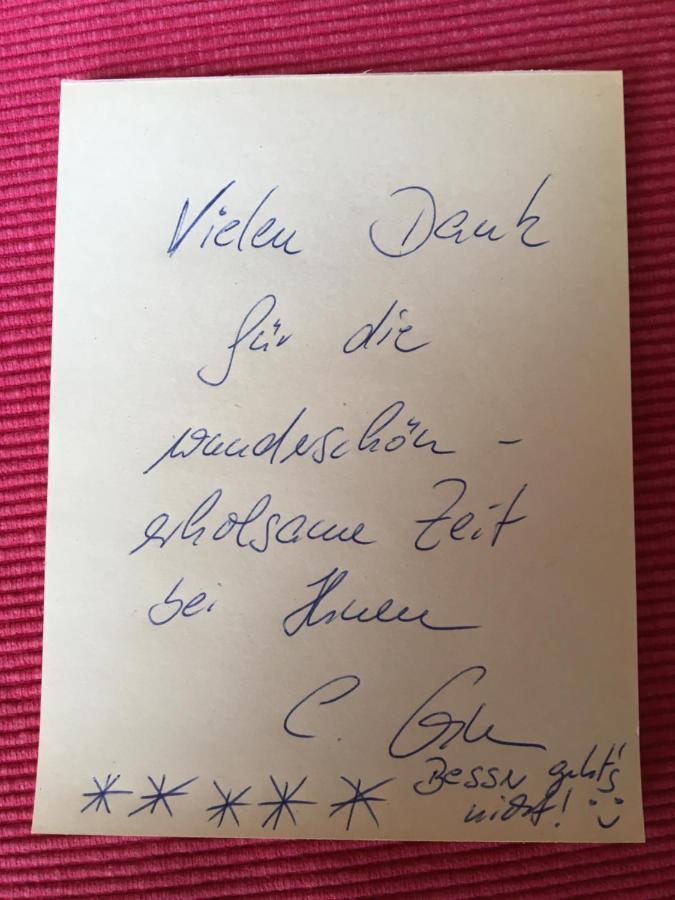 Vielen Dank
für die
wunderschön -
erholsame Zeit
bei Ihnen
C.
***** Besser geht's
nicht! :)